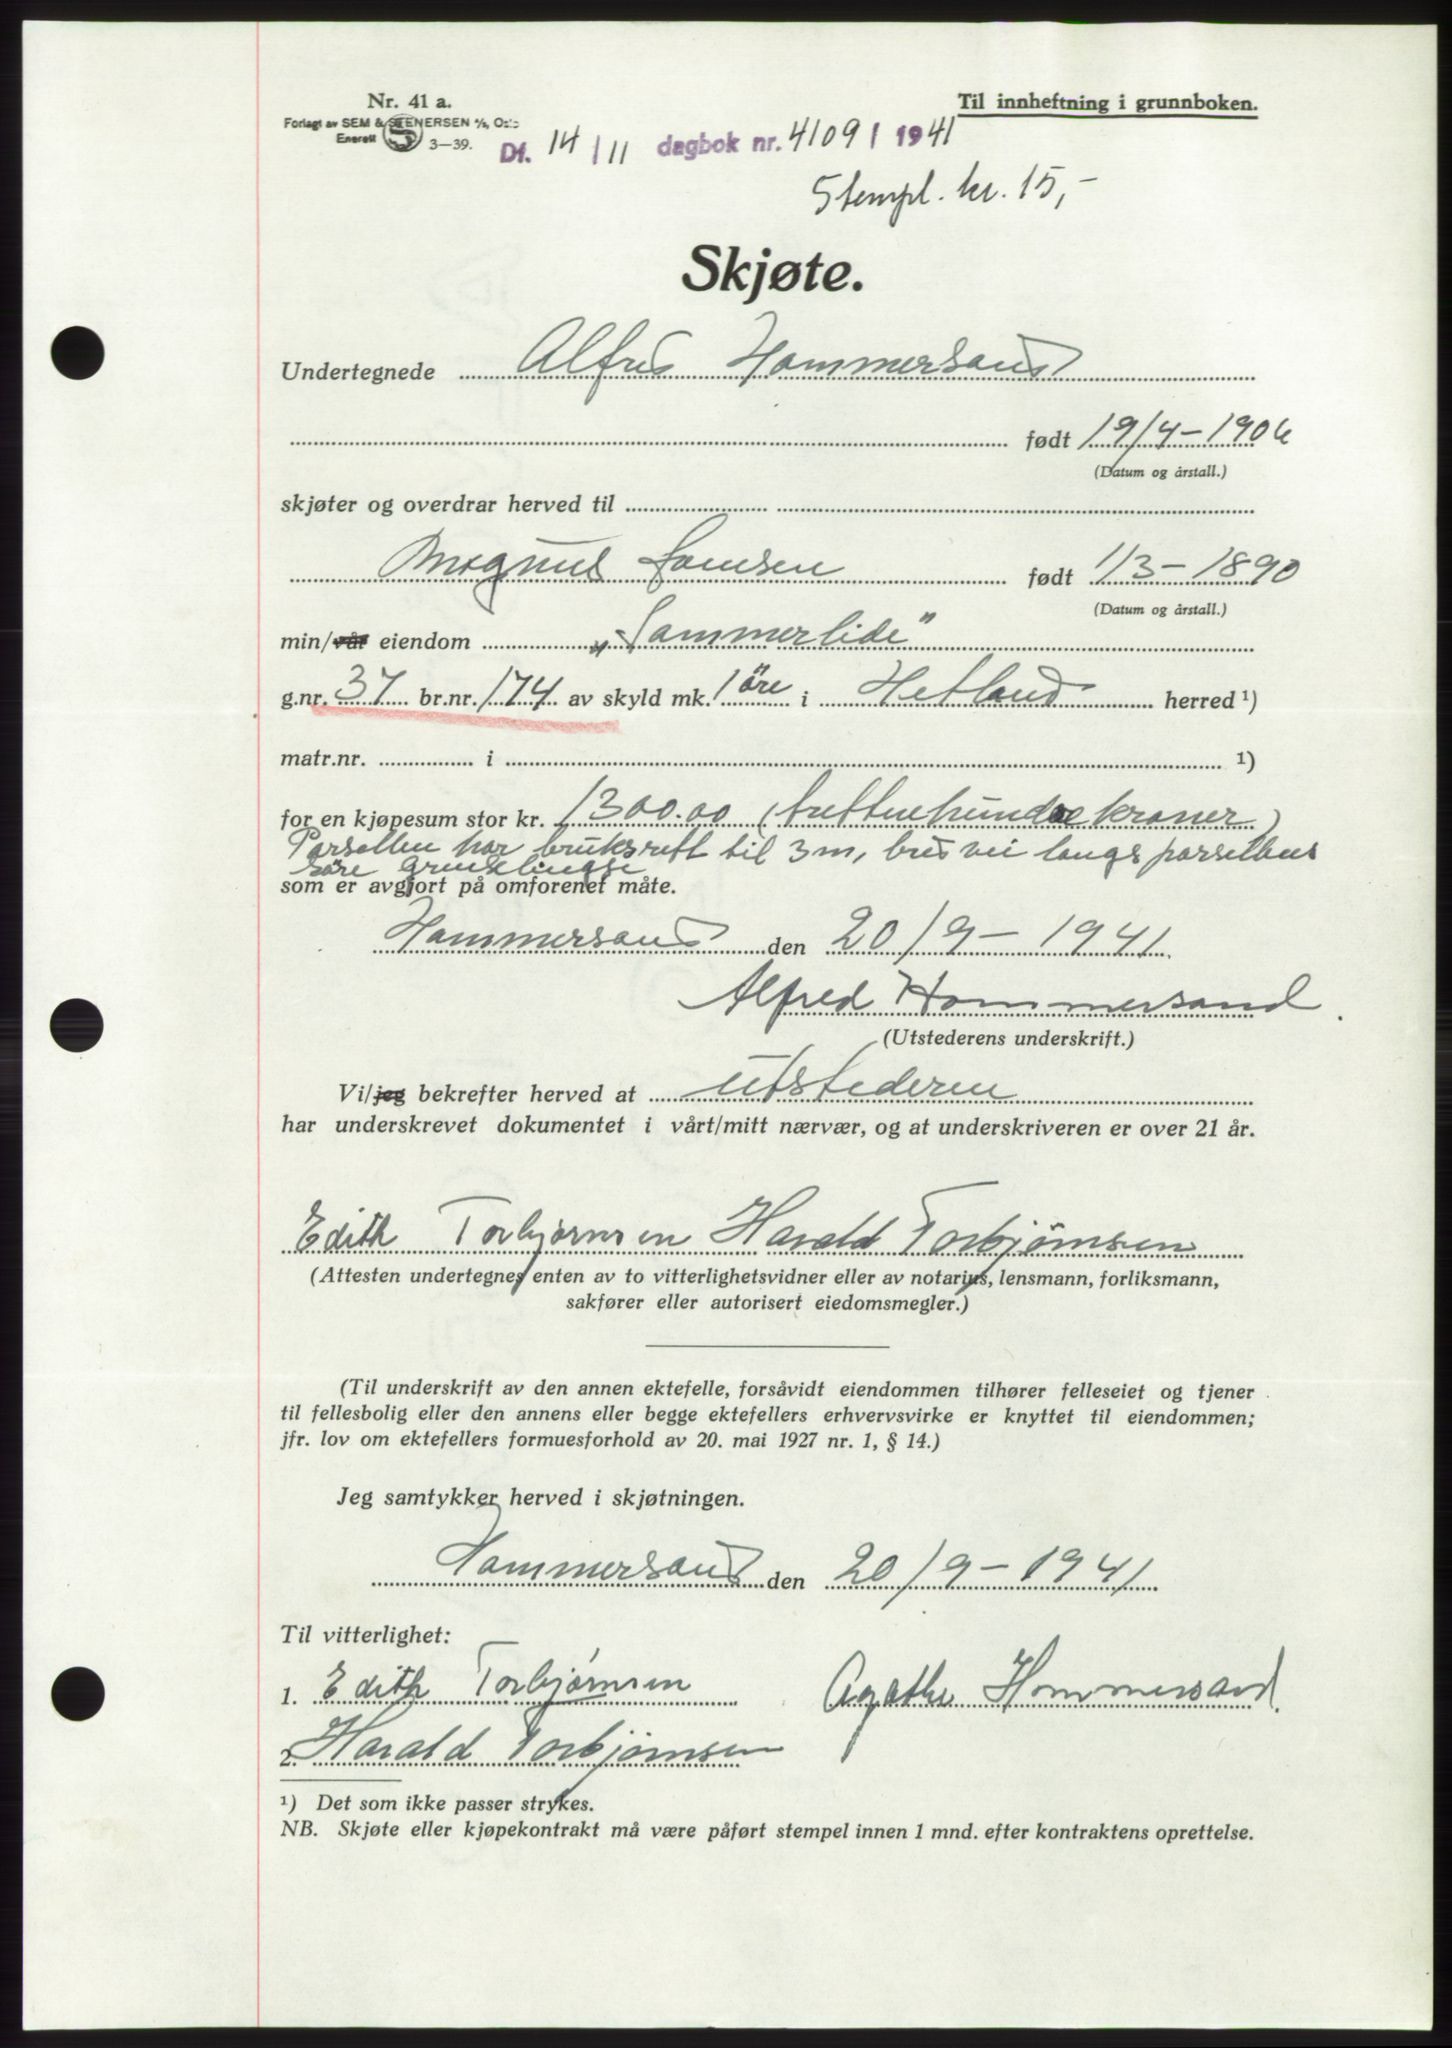 Nr. 41 a.
Forlagt av SEM & STENERSEN A/S, Oslo
Enerett 3—39.
Til innheftning i grunnboken.
Df. 14/11 dagbok nr. 4109 / 1941
Stempl. kr. 15,-
Skjøte.
Undertegnede Alfred Hammersand
født 19/4-1906
(Datum og årstall.)
skjøter og overdrar herved til
Magnus Jamsen født 1/3-1890
(Datum og årstall.)
min/vår eiendom „Sommerlide”
g.nr. 37 br.nr. 174 av skyld mk. 1 öre i Hetland herred ¹)
matr.nr. i ¹)
for en kjøpesum stor kr. 1300.00 (trettenhundre kroner)
Parsellen har bruksrett til 3 m, bred vei langs parsellens
söre grenselinje
som er avgjort på omforenet måte.
Hammersand den 20/9-1941.
Alfred Hommersand.
(Utstederens underskrift.)
Vi/jeg bekrefter herved at utstederen
har underskrevet dokumentet i vårt/mitt nærvær, og at underskriveren er over 21 år.
Edith Torbjørnsen Harald Torbjørnsen
(Attesten undertegnes enten av to vitterlighetsvidner eller av notarius, lensmann, forliksmann,
sakfører eller autorisert eiedomsmegler.)
(Til underskrift av den annen ektefelle, forsåvidt eiendommen tilhører felleseiet og tjener
til fellesbolig eller den annens eller begge ektefellers erhvervsvirke er knyttet til eiendommen;
jfr. lov om ektefellers formuesforhold av 20. mai 1927 nr. 1, § 14.)
Jeg samtykker herved i skjøtningen.
Hammersand den 20/9-1941.
Til vitterlighet:
1. Edith Torbjørnsen Agathe Hommersand.
2. Harald Torbjørnsen
¹) Det som ikke passer strykes.
NB. Skjøte eller kjøpekontrakt må være påført stempel innen 1 mnd. efter kontraktens oprettelse.